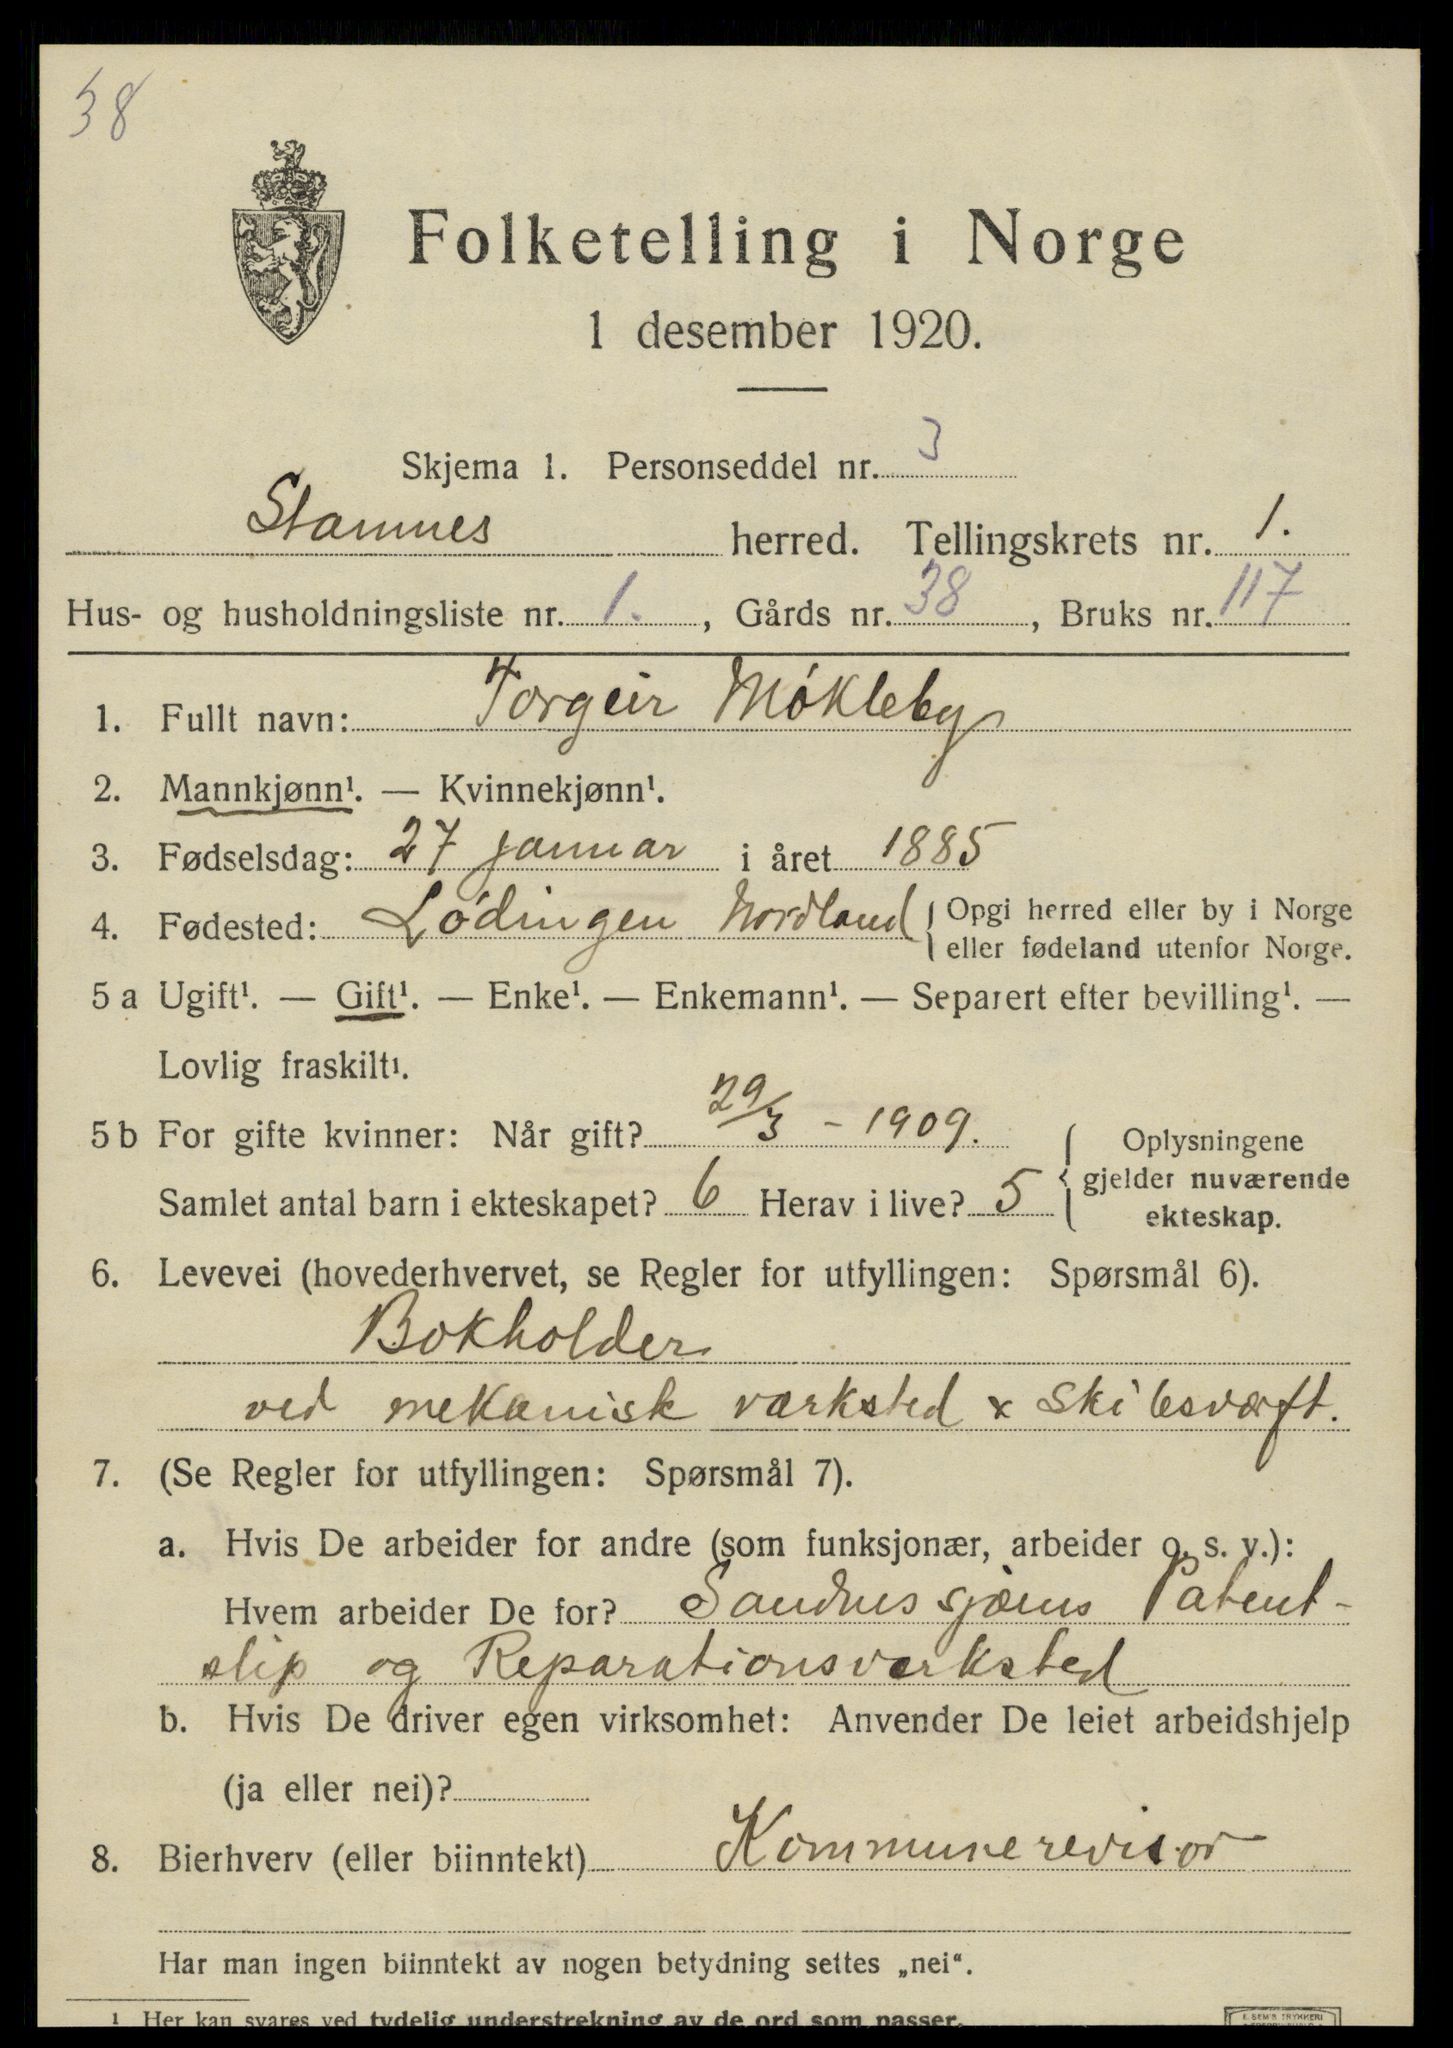 38
Folketelling i Norge
1 desember 1920.
Skjema 1. Personseddel nr. 3
Stamnes herred. Tellingskrets nr. 1.
Hus- og husholdningsliste nr. 1., Gårds nr. 38, Bruks nr. 117
1. Fullt navn: Torgeir Møkleby
2. Mannkjønn¹. — Kvinnekjønn¹.
3. Fødselsdag: 27 januar i året 1885
4. Fødested: Lödingen Nordland { Opgi herred eller by i Norge
eller fødeland utenfor Norge.
5 a Ugift¹. — Gift¹. — Enke¹. — Enkemann¹. — Separert efter bevilling¹. —
Lovlig fraskilt¹.
5 b For gifte kvinner: Når gift? 29/3 - 1909. { Oplysningene
gjelder nuværende
Samlet antal barn i ekteskapet? 6 Herav i live? 5
ekteskap.
6. Levevei (hovederhvervet, se Regler for utfyllingen: Spørsmål 6).
Bokholder
ved mekanisk værksted & skibsværft.
7. (Se Regler for utfyllingen: Spørsmål 7).
a. Hvis De arbeider for andre (som funksjonær, arbeider o. s. v.):
Hvem arbeider De for? Sandnessjøens Patent-
slip og Reparationsværksted
b. Hvis De driver egen virksomhet: Anvender De leiet arbeidshjelp
(ja eller nei)?
8. Bierhverv (eller biinntekt) Kommunerevisor
Har man ingen biinntekt av nogen betydning settes „nei“.
¹ Her kan svares ved tydelig understrekning av de ord som passer.
E. SEM'S TRYKKERI